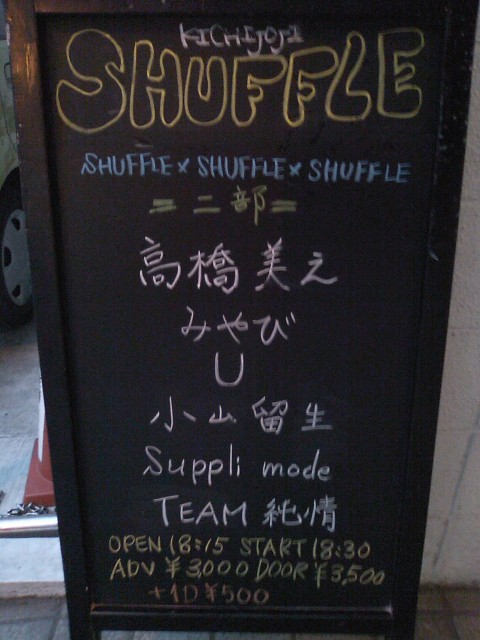 KICHIJOJI
SHUFFLE
SHUFFLE×SHUFFLE×SHUFFLE
=二部=
高橋美え
みやび
U
小山留生
Suppli mode
TEAM 純情
OPEN 18:15 START 18:30
ADV ¥3,000 DOOR ¥3,500
+1D ¥500